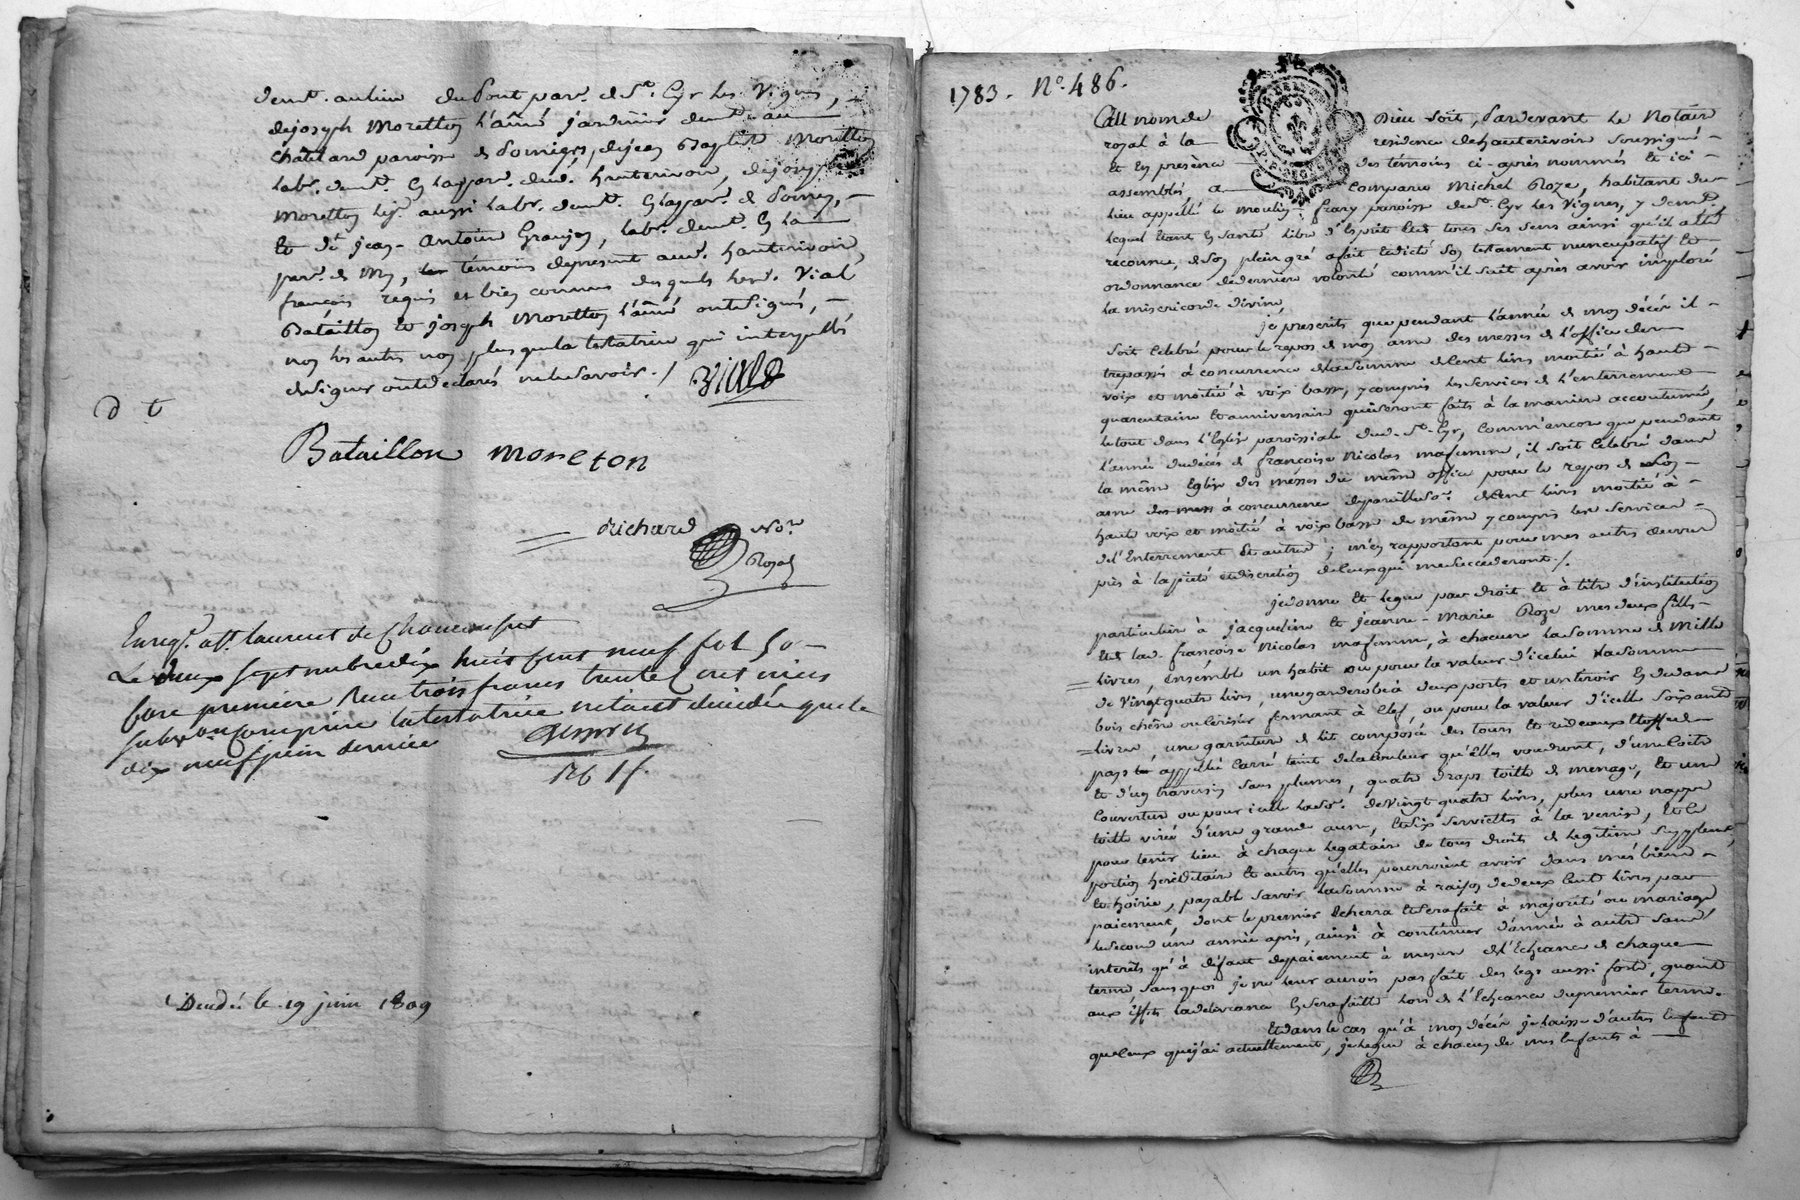 demt. au lieu du Pont par. de St. Cyr les Vignes,
de joseph Moretton l'aîné jardinier demt. au
châtelard paroisse de Pomiers, de jean Baptiste Moretton
labr. demt. en la par. dud. hauterivoir, de joseph
Moretton lejr. aussi labr. demt. en la par. de Pomiers,
Et de jean-Antoine Granjon, labr. demt. en la
par. de témoins de present aud. hauterivoir,
françois requis et bien connus desquels led. Vial
Bataillon et joseph Moretton l'aîné ont signé,
non les autres non plus que la testatrice qui interpellés
de signer ont declarés ne le savoir ./ Vial
d t
Bataillon moreton
Richard Nore.
Royal
Enregt. a St. laurent de Chamousset
Le deux septembre dix huit cent neuf fol 50
Case première Reçu trois francs trente centimes
subvon comprise la testatrice n'étant décédée que le
dix neuf juin dernier
Décédée le 19 juin 1809
1783. No. 486.
Au nom de Dieu soit, Pardevant Le Notaire
royal à la residence de hauterivoir soussigné
et En presence des témoins ci-après nommés Et ici
assemblés, a Comparu Michel Roze, habitant du
lieu appellé le moulin frary paroisse de St. Cyr les Vignes, y demt.,
lequel Etant En santé libre d'Esprit Et de tous ses sens ainsi qu'il a Eté
reconnu, de son plein gré a fait et dicté son testament nuncupatif et
ordonnance de dernière volonté comm'il suit après avoir imploré
la misericorde divine,
je prescrits que pendant l'année de mon décès il
soit Celebré pour le repos de mon ame des messes de l'office des
trepassés à concurrence de la somme de Cent livres moitié à haute
voix et moitié à voix basse, y compris les services de l'enterrement
quarantaine Et anniversaire qui seront faits à la maniere accoutumée,
le tout dans l'Eglise paroissiale dud. St. Cyr, Comm'encore que pendant
l'année du décès de françoise Nicolas ma femme, il soit Celebré dans
la même Eglise des messes du même office pour le repos de son
ame à concurrence de pareille so[m]e. de Cent livres moitié à
haute voix et moitié à voix basse de même y compris les services
de l'Enterrement Et autres ; m'en rapportant pour mes autres œuvres
pies à la pieté et discretion de Ceux qui me succederont ./.
je donne Et legue par droit Et à titre d'institution
particuliere à jacqueline Et jeanne-Marie Roze mes deux filles
Et de lad. françoise Nicolas ma femme, à chacune la somme de Mille
livres, Ensemble un habit ou pour la valeur d'icelui la somme
de Vingt quatre livres, une garderobe à deux portes et un tiroir En dedans
bois chêne ou Cerisier fermant à Clef, ou pour la valeur d'icelle soixante
livres, une garniture de lit composée des tours et rideaux Etoffe de
pays appellé Carré teint de la Couleur qu'Elles voudront, d'une Coitre
Et d'un traversin sans plumes, quatre draps toille de menage, Et une
Couverture ou pour icelle la so. de Vingt quatre livres, plus une nappe
toille virée d'une grande aune, Et six serviettes à la venise, Et Ce
pour tenir lieu à chaque legataire de tous droits de legitime supplement,
portion hereditaire Et autres qu'elles pourroient avoir dans mes biens
Et hoirie, payable savoir la somme à raison de deux Cent livres par
paiement, dont le premier Echerra Et sera fait à majorité ou mariage
le second une année après, ainsi à continuer d'année à autre sans
interêts qu'à défaut de paiement à mesure de l'Echeance de chaque
terme sans quoi je ne leur aurois pas fait des legs aussi forts, quant
aux Effets la delivrance En sera faitte lors de l'Echeance du premier terme.
Et dans le cas qu'à mon décès je laisse d'autres Enfants
que Ceux que j'ai actuellement, je legue à chacun de mes Enfants à